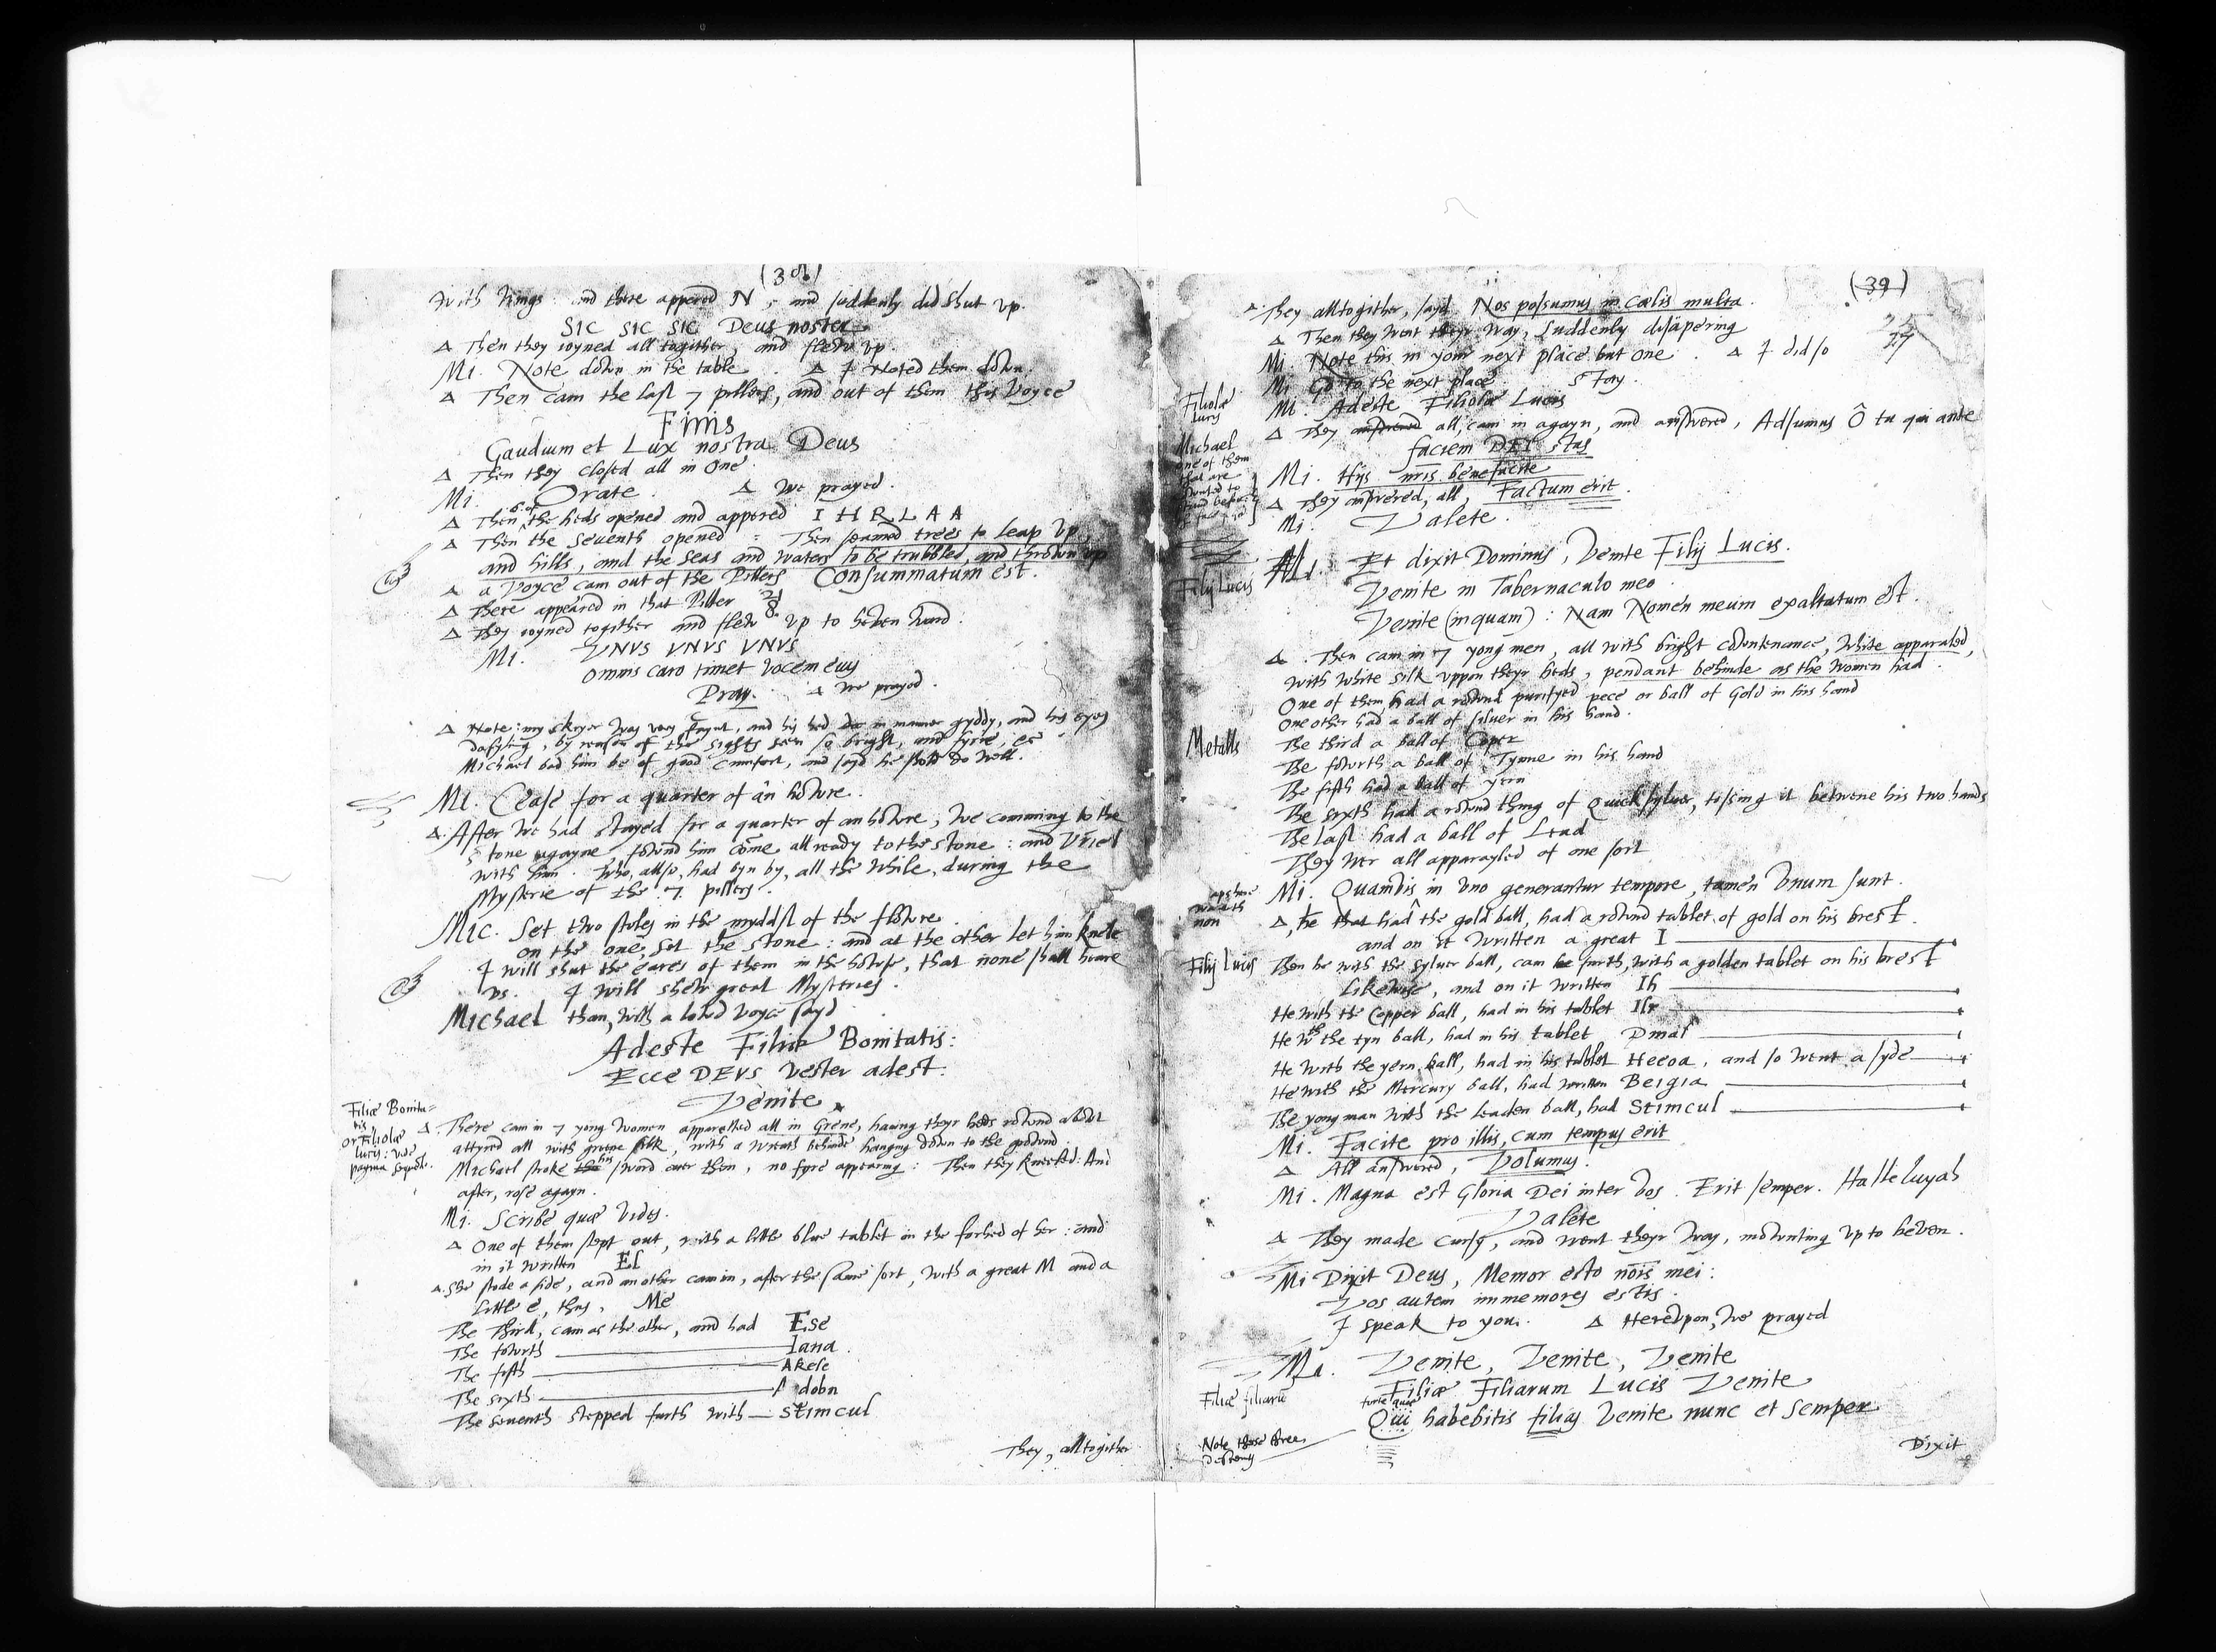 (38)
with wings: and there appered N, and suddenly did shut up.
SIC SIC SIC Deus noster
Δ Then they ioyned all togither, and flew up.
Mi. Note down in the table. Δ I Noted them down.
Δ Then cam the last 7 pillers, and out of them this Voyce
Finis
Gaudium et Lux nostra Deus
Δ Then they closed all in One.
Mi. Orate. Δ We prayed.
Δ Then 6 of the heds opened and appered I H R L A A
Δ Then the seventh opened: Then semed trees to leap up,
and hills, and the seas and waters to be trubbled, and thrown up
Δ a Voyce cam out of the Pillers Consummatum est.
Δ There appeared in that Piller 21/8
Δ They ioyned togither and flew up to heven ward.
Mi. VNVS VNVS VNVS
Omnis caro timet vocem eius
Pray. Δ We prayed.
Δ Note: my skryer was very faynt, and his hed in manner gyddy, and his eyes
dasyling, by reason of the sights seen so bright, and fyrie, &c
Michael bad him be of good cumfort, and sayd he shold do well.
Mi. Cease for a quarter of an howre.
Δ. After we had stayed for a quarter of an howre, we comming to the
stone agayne fownd him come all ready to the stone: and Vriel
with him. Who, allso, had byn by, all the while, during the
Mysterie of the 7 pillers.
Mic. Set two stoles in the myddst of the flowre.
on the one, set the stone: and at the other let him knele
I will shut the eares of them in the howse, that none shall heare
vs. I will shew great Mysteries.
Michael than, with a lowd voyce sayd
Adeste Filiæ Bonitatis:
Ecce DEVS vester adest:
Venite
Filiæ Bonita=
tis
or Filiolæ
lucis: vide
pagina sequente.
Δ. There cam in 7 yong women apparelled all in Grene, having theyr heds rownd abowt
attyred all with grene silk, with a wreath behinde hanging down to the grownd.
Michael stroke his sword over them, no fyre appearing: Then they kneeled: And
after, rose agayn.
Mi. Scribe quæ vides.
Δ One of them stept out, with a little blue tablet on the forhed of her: and
in it written El
Δ. She stode a side, and an other cam in, after the same sort, with a great M and a
little e, thus, Me
The Third, cam as the other, and had Ese
The fowrth Iana.
The fifth Akele
The sixth Azdobn
The seventh stepped furth with Stimcul
They, all togither
(39)
Δ. They all togither, sayd Nos possumus in cælis multa.
Δ Then they went theyr way, suddenly disapering
Mi. Note this in your next place but one. Δ I did so
Mi Go to the next place. Stay.
Filiolæ
lucis
Mi. Adeste Filiolæ Lucis
Δ They answered all, cam in agayn, and answered, Adsumus Ô tu qui ante
faciem DEI stas
Michael
one of them
that are
Mi. Hijs nris benefacite
Δ They answered, all, Factum erit.
Mi. Valete.
Filij Lucis
Mi. Et dixit Dominus, Venite Filij Lucis.
Venite in Tabernaculo meo.
Venite (inquam): Nam Nomen meum exaltatum est.
Δ. Then cam in 7 yong men, all with bright cowntenance, White apparaled,
with white silk uppon theyr heds, pendant behinde as the women had.
One of them had a rownd purifyed pece or ball of Gold in his hand
One other had a ball of silver in his hand.
Metalls
The third a ball of Coper
The fowrth a ball of Tynne in his hand
The fifth had a ball of yern
The sixth had a rownd thing of Quicksylver, tossing it betwene his two hands
The last had a ball of Lead
They wer all apparayled of one sort
Mi. Quamvis in uno generantur tempore, tamen Vnum sunt.
Δ, he that had the gold ball, had a rownd tablet of gold on his brest.
and on it written a great I
Filij Lucis
Then he with the sylver ball, cam furth, with a golden tablet on his brest
likewise, and on it written Ih
He with the Copper ball, had in his tablet Ilr
He wth the tyn ball, had in his tablet Dmal
He with the yern ball, had in his tablet Heeoa, and so went a syde
He with the Mercury ball, had written Beigia
The yong man with the leaden ball, had Stimcul
Mi. Facite pro illis, cum tempus erit
Δ All answered, Volumus.
Mi. Magna est Gloria Dei inter vos. Erit semper. Halleluyah
Valete
Δ They made cursy, and went theyr way, mownting up to heven.
Mi Dixit Deus, Memor esto nōis mei:
Vos autem immemores estis.
I speak to you. Δ Hereupon, we prayed
Mi. Venite, Venite, Venite
Filiæ filiarū
Filiæ Filiarum Lucis Venite
forte quæ
Qui habebitis filias venite nunc et semper
Note these three
descents
Dixit